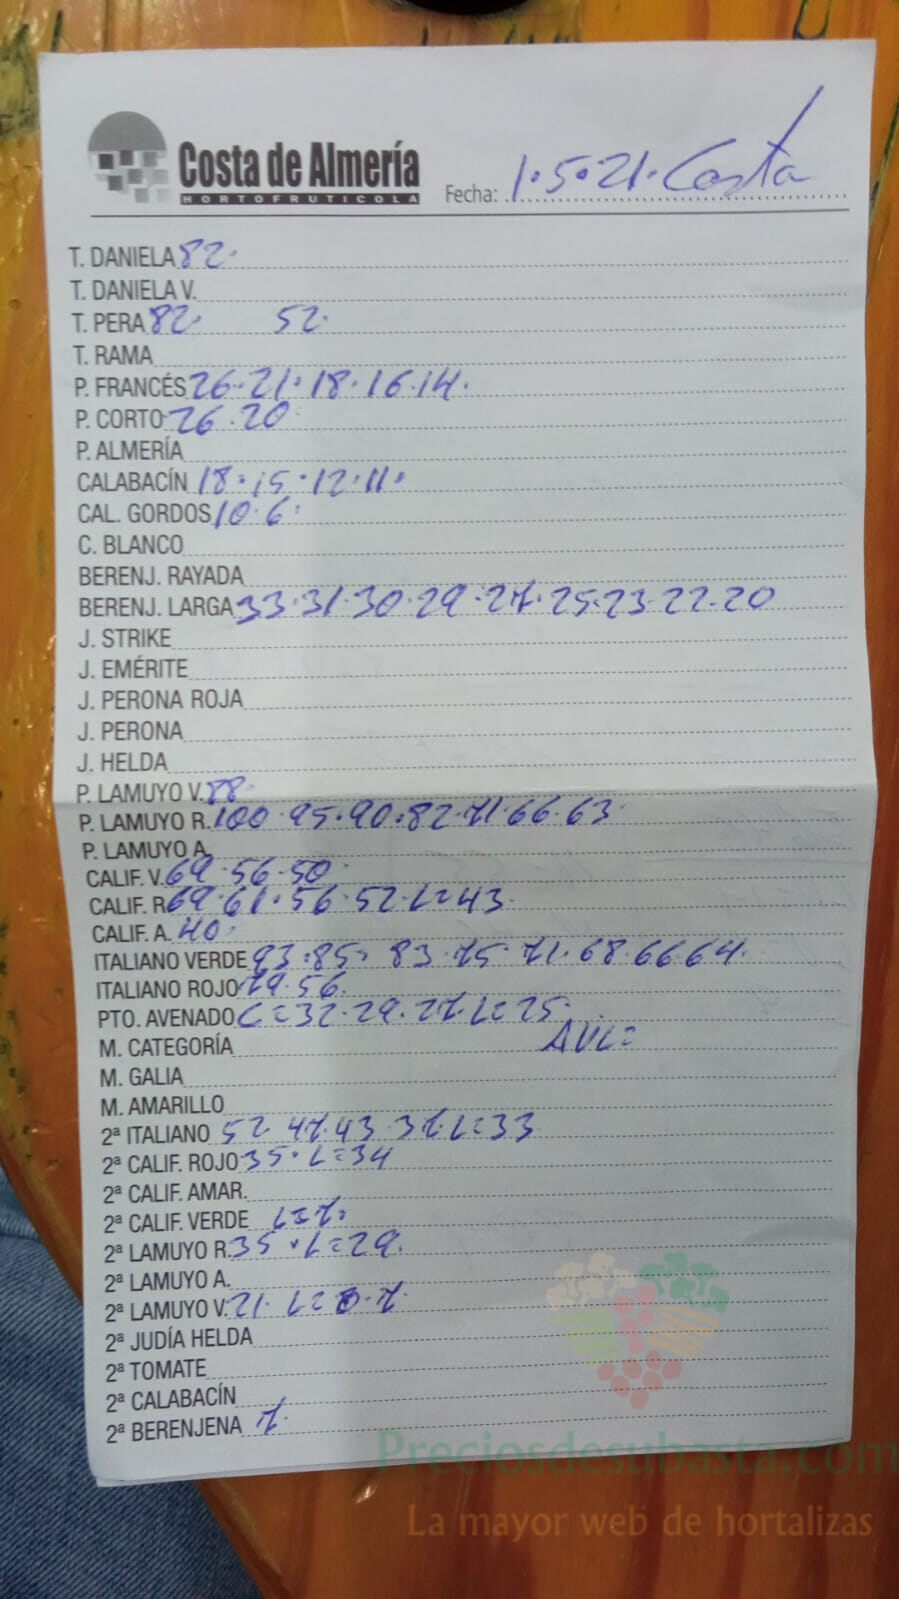 Costa de Almería
HORTOFRUTICOLA
Fecha: 1.5.21. Costa
T. DANIELA 82.
T. DANIELA V.
T. PERA 82. 52.
T. RAMA
P. FRANCÉS 26.21.18.16.14.
P. CORTO 26.20
P. ALMERÍA
CALABACÍN 18.15.12.11.
CAL. GORDOS 10.6
C. BLANCO
BERENJ. RAYADA
BERENJ. LARGA 33.31.30.29.27.25.23.22.20
J. STRIKE
J. EMÉRITE
J. PERONA ROJA
J. PERONA
J. HELDA
P. LAMUYO V. 88.
P. LAMUYO R. 100.95.90.82.71.66.63
P. LAMUYO A.
CALIF. V. 69.56.50
CALIF. R. 69.61.56.52.L=43
CALIF. A. 40.
ITALIANO VERDE 93.85. 83.75.71.68.66.64.
ITALIANO ROJO 79.56.
PTO. AVENADO C=32.29.27.L=25.
M. CATEGORÍA
M. GALIA
M. AMARILLO
2ª ITALIANO 52 47.43 37.L=33
2ª CALIF. ROJO 35.L=34
2ª CALIF. AMAR.
2ª CALIF. VERDE L=7.
2ª LAMUYO R. 35.L=29.
2ª LAMUYO A.
2ª LAMUYO V. 21 L= 7.
2ª JUDÍA HELDA
2ª TOMATE
2ª CALABACÍN
2ª BERENJENA 7.
Preciosdesubasta.com
La mayor web de hortalizas